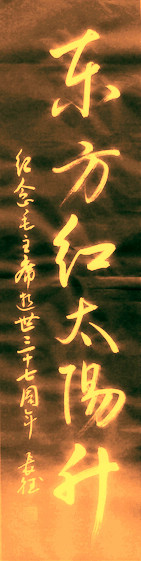 东方红太陽升
纪念毛主席逝世三十七周年 长征